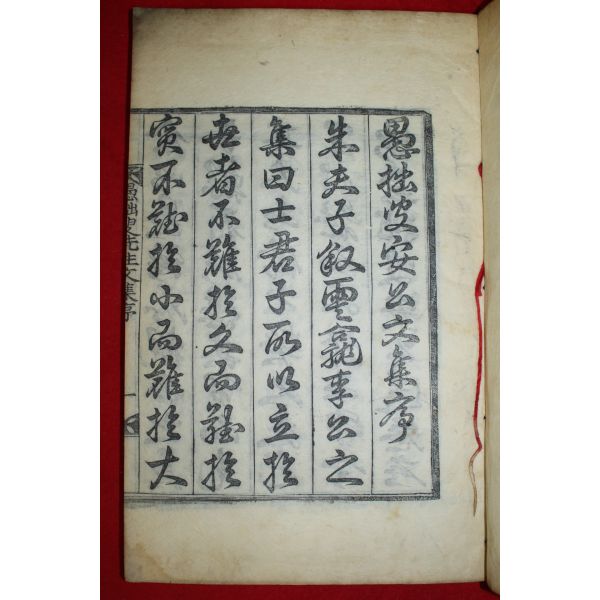 愚拙叟安公文集序
朱夫子叙雲龕李公之
集曰士君子所以立於
世者不難於文而難於
實不難於小而難於大
愚拙叟先生文集序
一